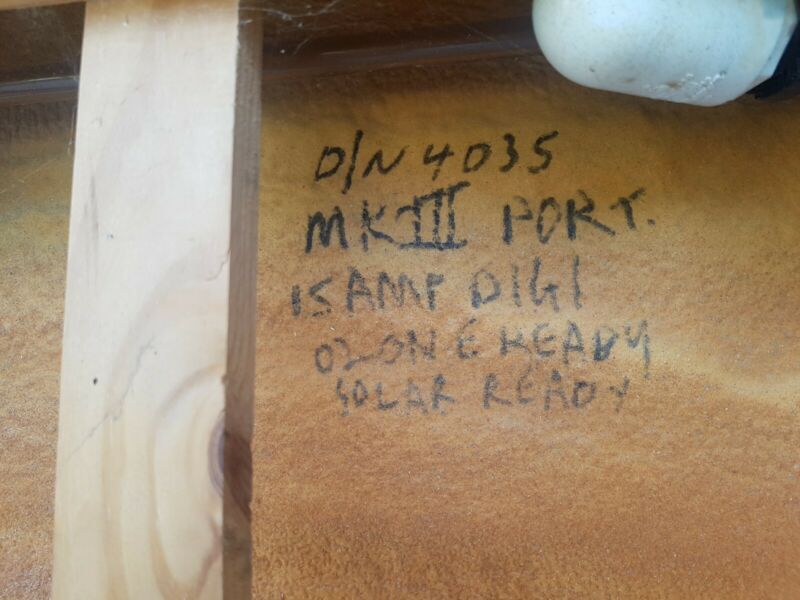 O/N 4035
MK III PORT.
15 AMP DIGI
OZONE READY
SOLAR READY